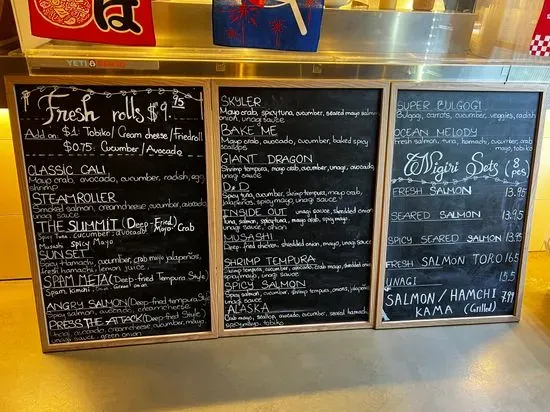 は
YETI
Fresh rolls $9.95
Add on $1: Tobiko / Cream cheese / Fried roll
$0.75: Cucumber / Avocado
CLASSIC CALI
Mayo crab, avocado, cucumber, radish, egg,
shrimp
STEAMROLLER
Smoked salmon, creamcheese, cucumber, avocado,
unagi sauce
THE SUMMIT (Deep-Fried)
Spicy Tuna, cucumber, avocado, Mayo Crab
Musashi spicy Mayo
SUNSET
Spicy Hamachi, cucumber, crab mayo, jalapeños,
fresh hamachi, lemon juice
SPAM META (Deep-fried Tempura Style)
Spam, kimchi, onion
ANGRY SALMON (Deep-fried Tempura Style)
Spicy salmon, avocado, creamcheese
PRESS THE ATTACK (Deep-fried Style)
avocado, creamcheese, cucumber, mayo,
unagi sauce, green onion
SKYLER
Mayo crab, spicy tuna, cucumber, seared mayo salmon,
onion, unagi sauce
BAKE ME
Mayo crab, avocado, cucumber, baked spicy
scallops
GIANT DRAGON
Shrimp tempura, mayo crab, cucumber, unagi, avocado,
unagi sauce
D&D
Spicy tuna, cucumber, shrimp tempura, mayo crab,
jalapeños, spicy mayo, unagi sauce
INSIDE OUT unagi sauce, shredded onion
tuna, salmon, spicy tuna, mayo crab, spicy mayo,
unagi sauce, onion
MUSASHI
Deep-fried chicken, shredded onion, mayo, unagi sauce
SHRIMP TEMPURA
Shrimp tempura, cucumber, avocado, crab mayo, shredded onion,
unagi sauce
SPICY SALMON
Spicy salmon, cucumber, shrimp tempura, onions, jalapeños,
unagi sauce
ALASKA
Crab mayo, scallop, avocado, cucumber, seared hamachi,
spicy mayo, tobiko
SUPER BULGOGI
Bulgogi, carrots, cucumber, veggies, radish
OCEAN MELODY
Fresh salmon, tuna, hamachi, cucumber, crab
mayo, tobiko
Nigiri Sets (8 pcs)
FRESH SALMON 13.95
SEARED SALMON 13.95
SPICY SEARED SALMON 13.95
FRESH SALMON TORO 16.5
UNAGI 15.5
SALMON / HAMCHI 7.99
KAMA (Grilled)